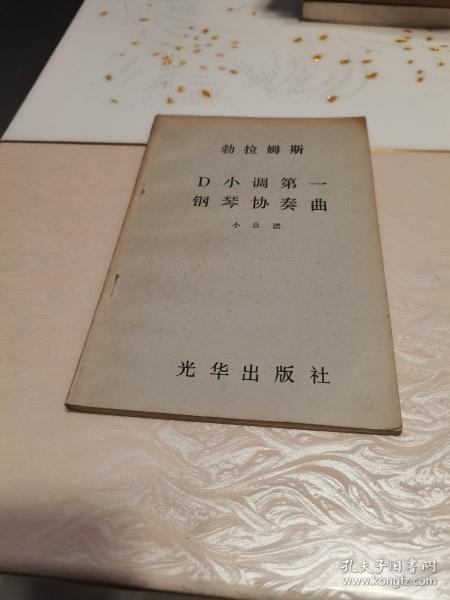 勃拉姆斯
D小调第一
钢琴协奏曲
小总谱
光华出版社
孔夫子旧书网
www.kongfz.com